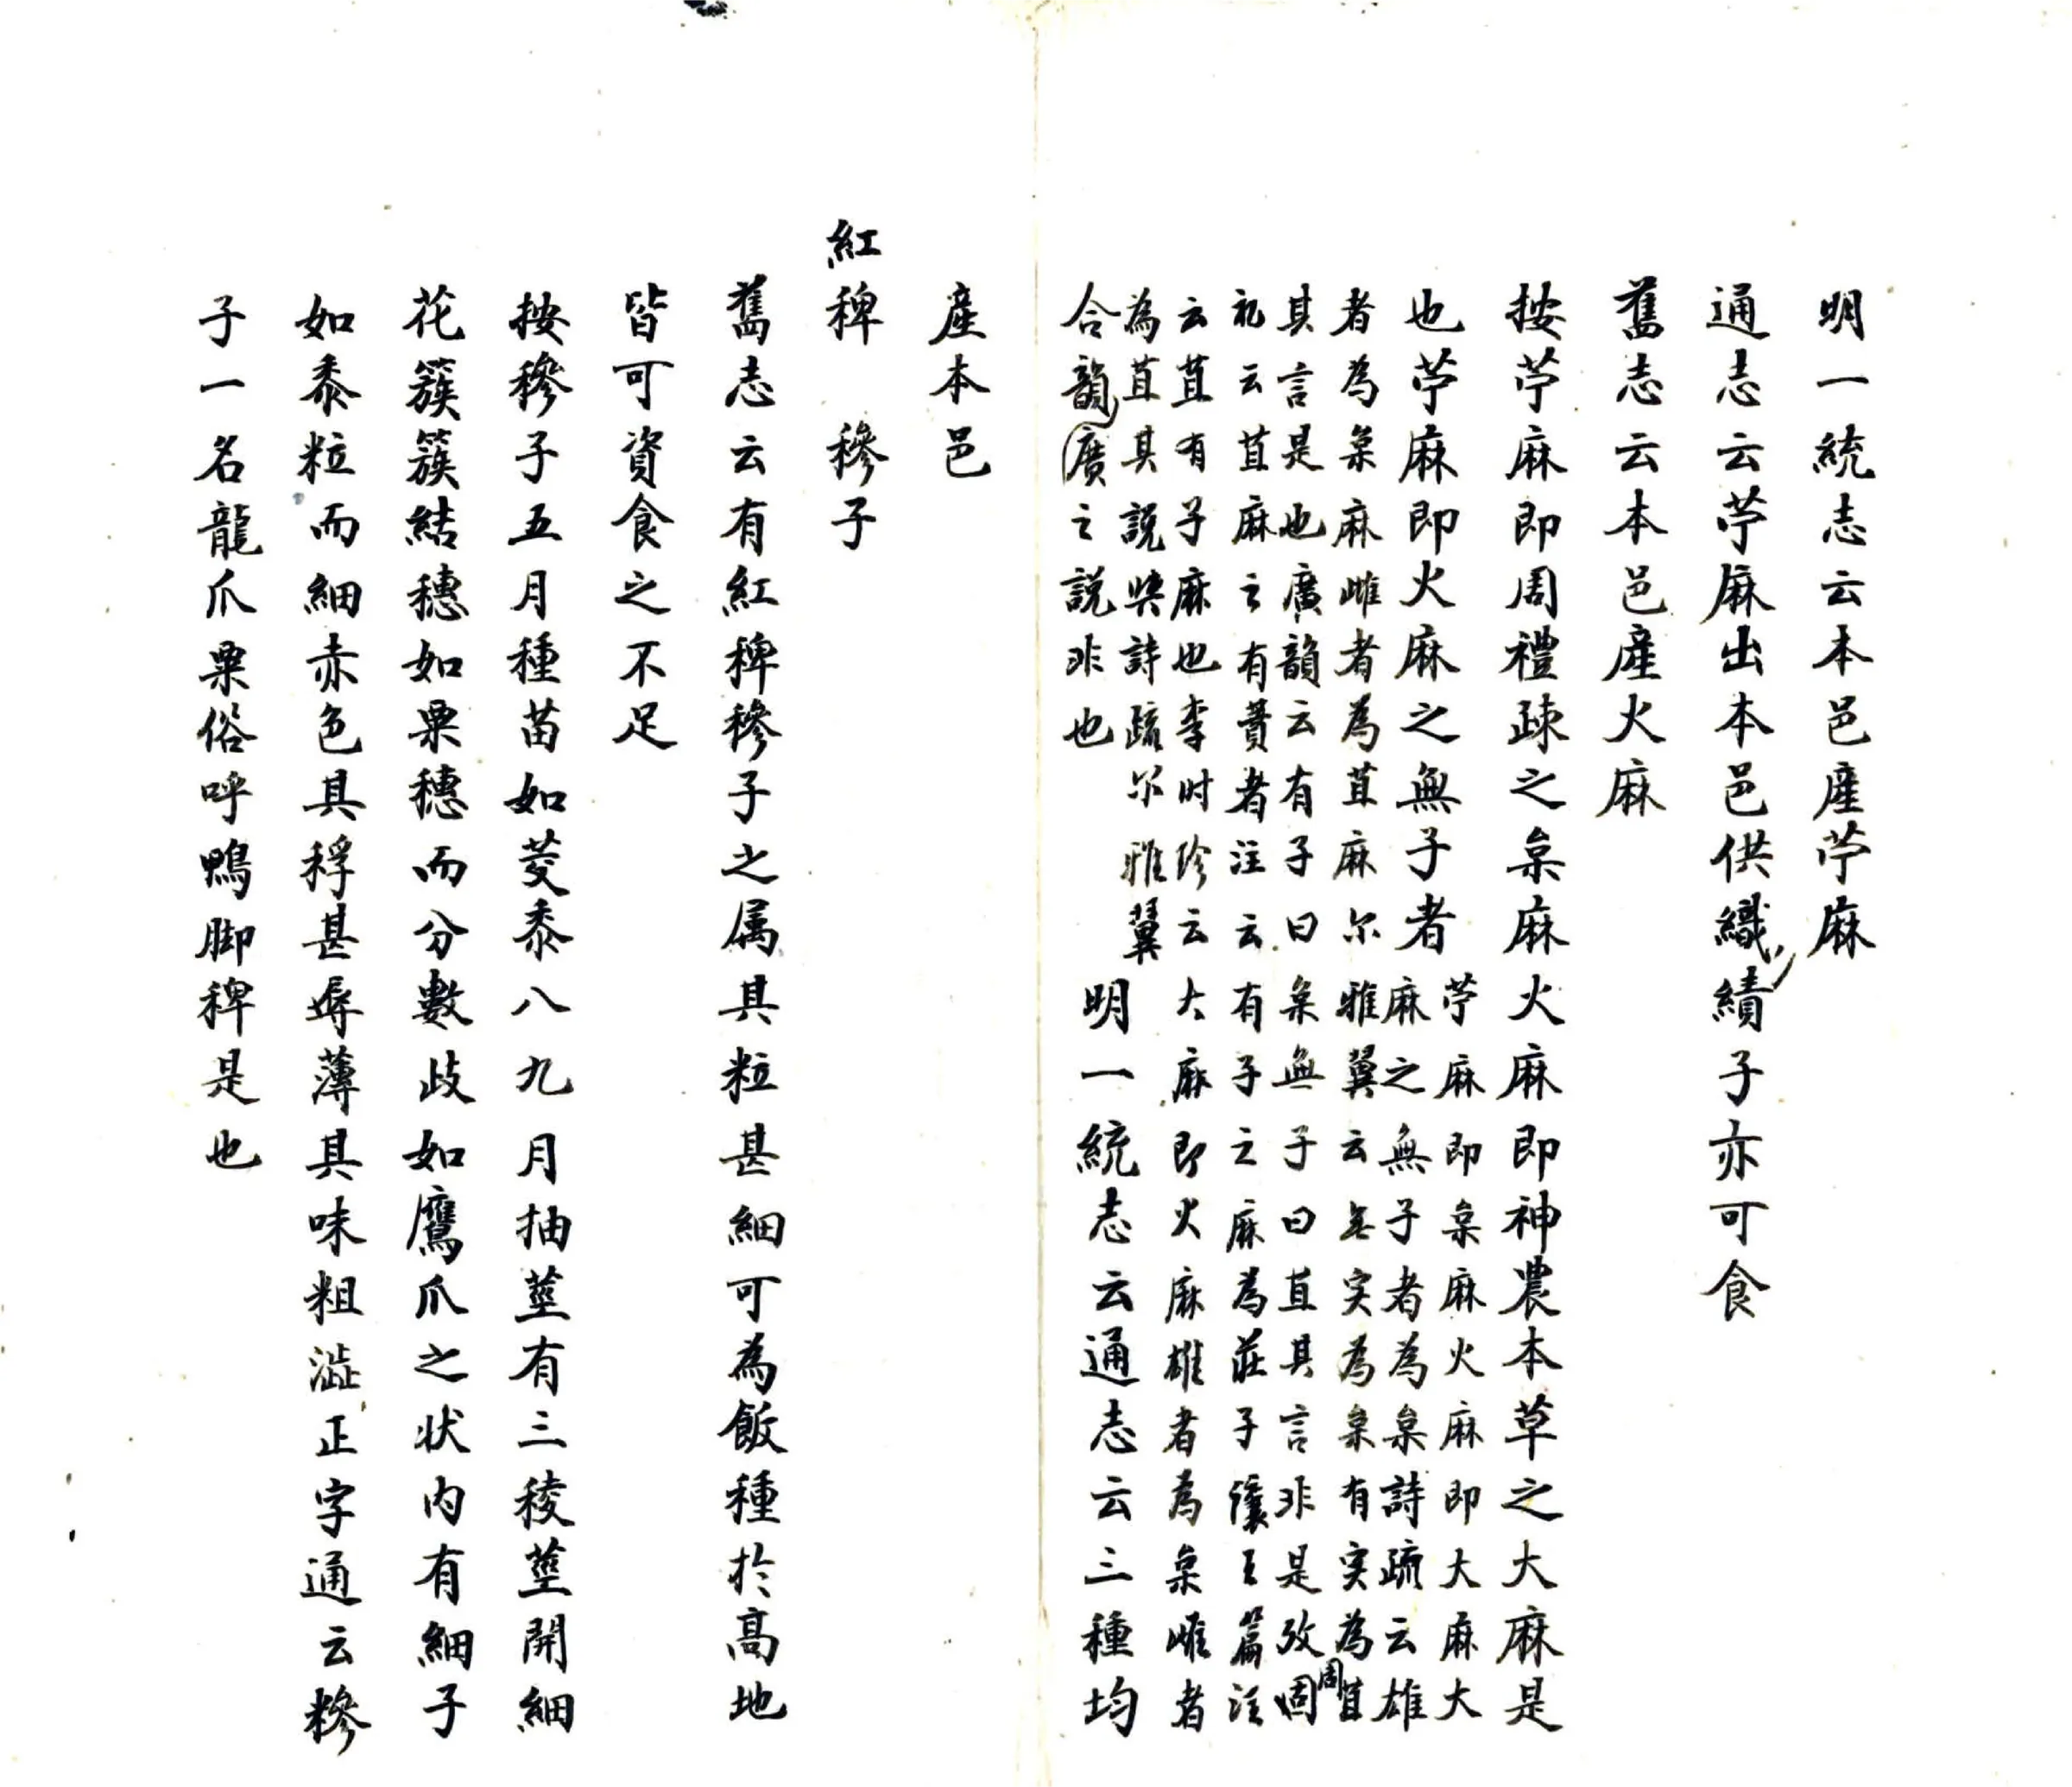 明一統志云本邑產苧麻
通志云苧麻出本邑供織績子亦可食
舊志云本邑產火麻
按苧麻即周禮疎之枲麻火麻即神農本草之大麻是
也苧麻即火麻之無子者
苧麻即枲麻火麻即大麻大
麻之無子者為枲詩疏云雄
者為枲麻雌者為苴麻尔雅翼云无实為枲有实為苴
其言是也廣韻云有子曰枲無子曰苴其言非是攷周
礼云苴麻之有蕡者注云有子之麻為莊子讓王篇注
云苴有子麻也李时珍云大麻即火麻雄者為枲雌者
為苴其說與詩疏尔雅翼
合韻廣之説非也
明一統志云通志云三種均
產本邑
紅稗 穇子
舊志云有紅稗穇子之属其粒甚細可為飯種於高地
皆可資食之不足
按穇子五月種苗如茭黍八九月抽莖有三稜莖開細
花簇簇結穗如粟穗而分數歧如鷹爪之状内有細子
如黍粒而細赤色其稃甚薄其味粗澁正字通云穇
子一名龍爪粟俗呼鴨脚稗是也